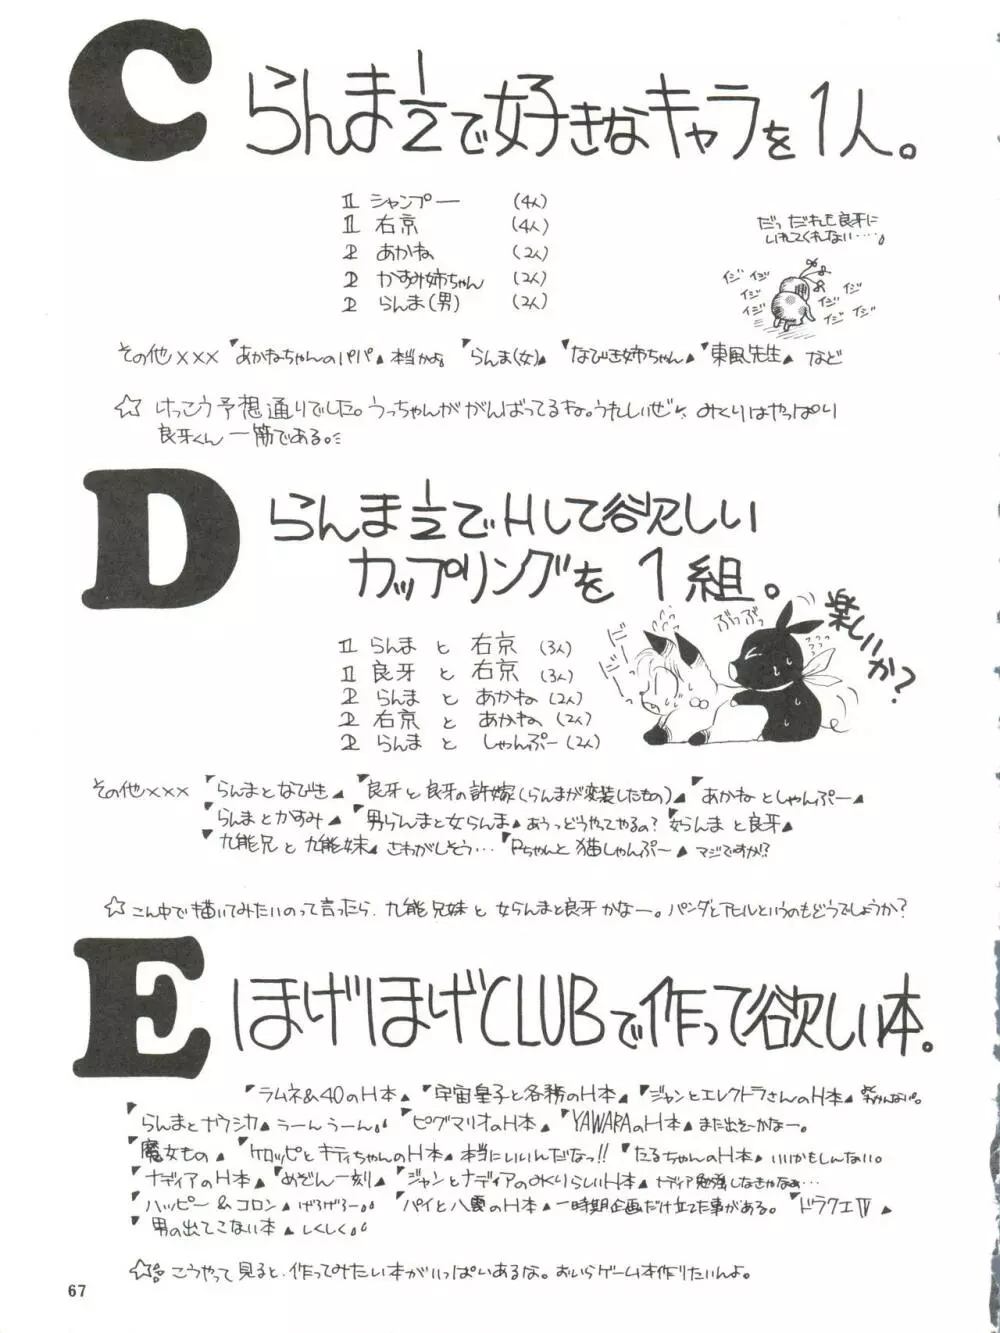 C
らんま1/2で好きなキャラを1人。
II シャンプー (4人)
II 右京 (4人)
D あかね (2人)
D かすみ姉ちゃん (2人)
D らんま(男) (2人)
だっ だれも良牙に
いれてくれない・・・・。
イジ イジ イジ イジ イジ イジ イジ イジ
その他××× 「あかねちゃんのパパ」本当かよ 「らんま(女)」 「なびき姉ちゃん」 「東風先生」 など
☆ けっこう予想通りでした。うっちゃんががんばってるね。うれしいぜ みくりはやっぱり
良牙くん一筋である。
D
らんま1/2でHして欲しい
カップリングを1組。
II らんま と 右京 (3人)
II 良牙 と 右京 (3人)
D らんま と あかね (2人)
D 右京 と あかね (2人)
D らんま と しゃんぷー (2人)
ぶっぶっ
楽しいか?
その他××× 「らんまとなびき」 「良牙と良牙の許嫁(らんまが変装したもの)」 「あかねとしゃんぷー」
「らんまとかすみ」 「男らんまと女らんま」あうっどうやってやるの? 「女らんまと良牙」
「九能兄と九能妹」さわがしそう… 「Pちゃんと猫しゃんぷー」マジですか!?
☆ こん中で描いてみたいのって言ったら、九能兄妹と女らんまと良牙かなー。パンダとアヒルというのもどうでしょうか?
E
ほげほげCLUBで作って欲しい本。
「ラムネ&40のH本」 「宇宙皇子と各務のH本」 「ジャンとエレクトラさんのH本」
「らんまとナウシカ」うーんうーん。 「ピグマリオのH本」 「YAWARAのH本」また出そーかなー。
「魔女もの」 「ケロッピとキティちゃんのH本」本当にいいんだなっ!! 「たるちゃんのH本」いいかもしんない。
「ナディアのH本」 「めぞん一刻」 「ジャンとナディアのみくりらしいH本」ナディア勉強しなきゃなぁ…
「ハッピー&コロン」げろげろー。 「パイと八雲のH本」一時期企画だけ立てた事がある。 「ドラクエIV」
「男の出てこない本」しくしく。
☆ こうやって見ると、作ってみたい本がいっぱいあるな。おいらゲーム本作りたいんよ。
67